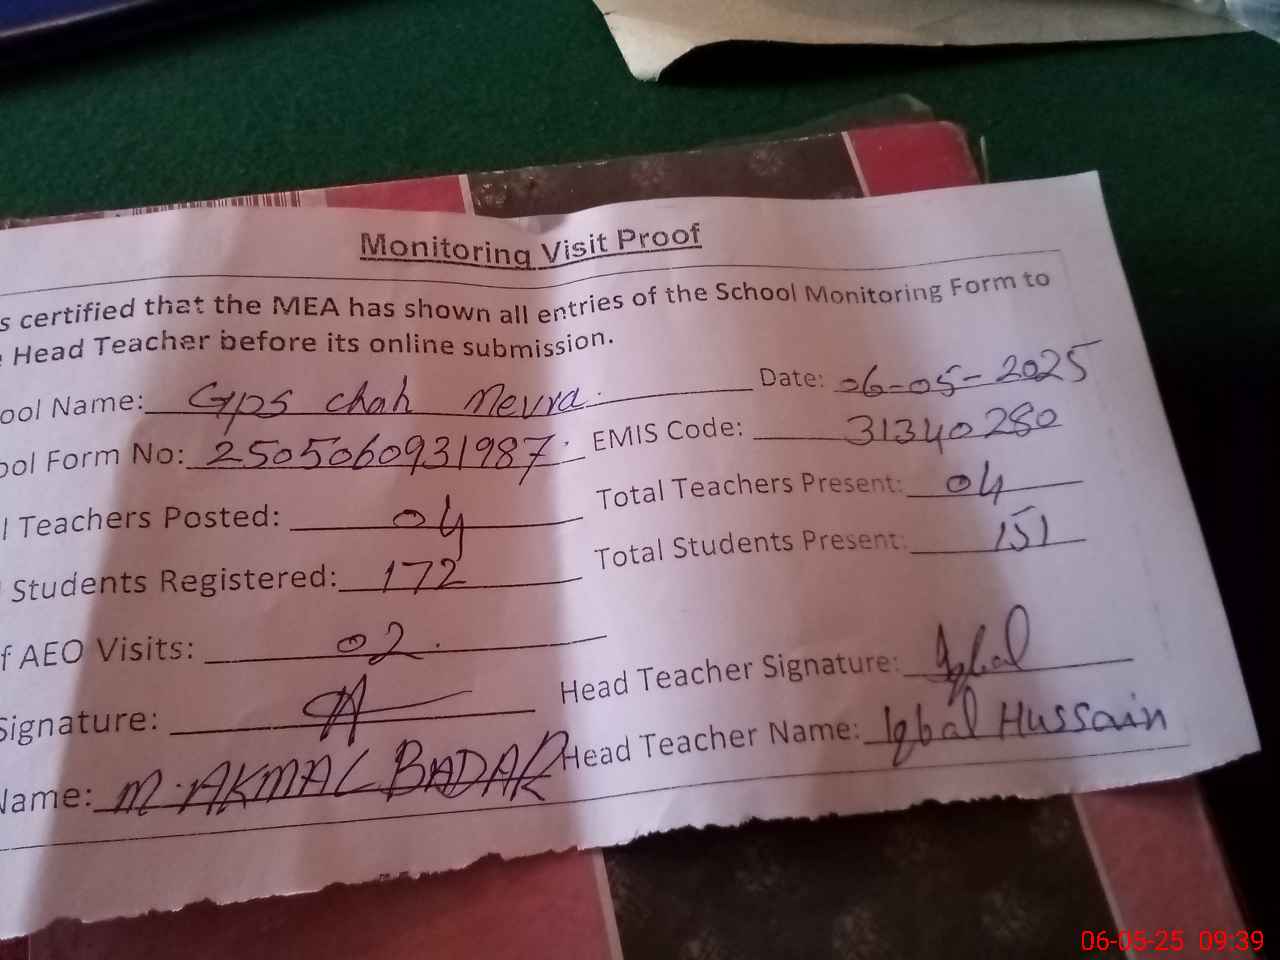 Monitoring Visit Proof
s certified that the MEA has shown all entries of the School Monitoring Form to
e Head Teacher before its online submission.
ool Name: GPS chah Nevra. Date: 06-05-2025
ool Form No: 2505060931987. EMIS Code: 31340280
l Teachers Posted: 04 Total Teachers Present: 04
Students Registered: 172 Total Students Present: 151
f AEO Visits: 02.
Signature: Head Teacher Signature: Iqbal
Name: M. AKMAL BADAR Head Teacher Name: Iqbal Hussain
06-05-25 09:39